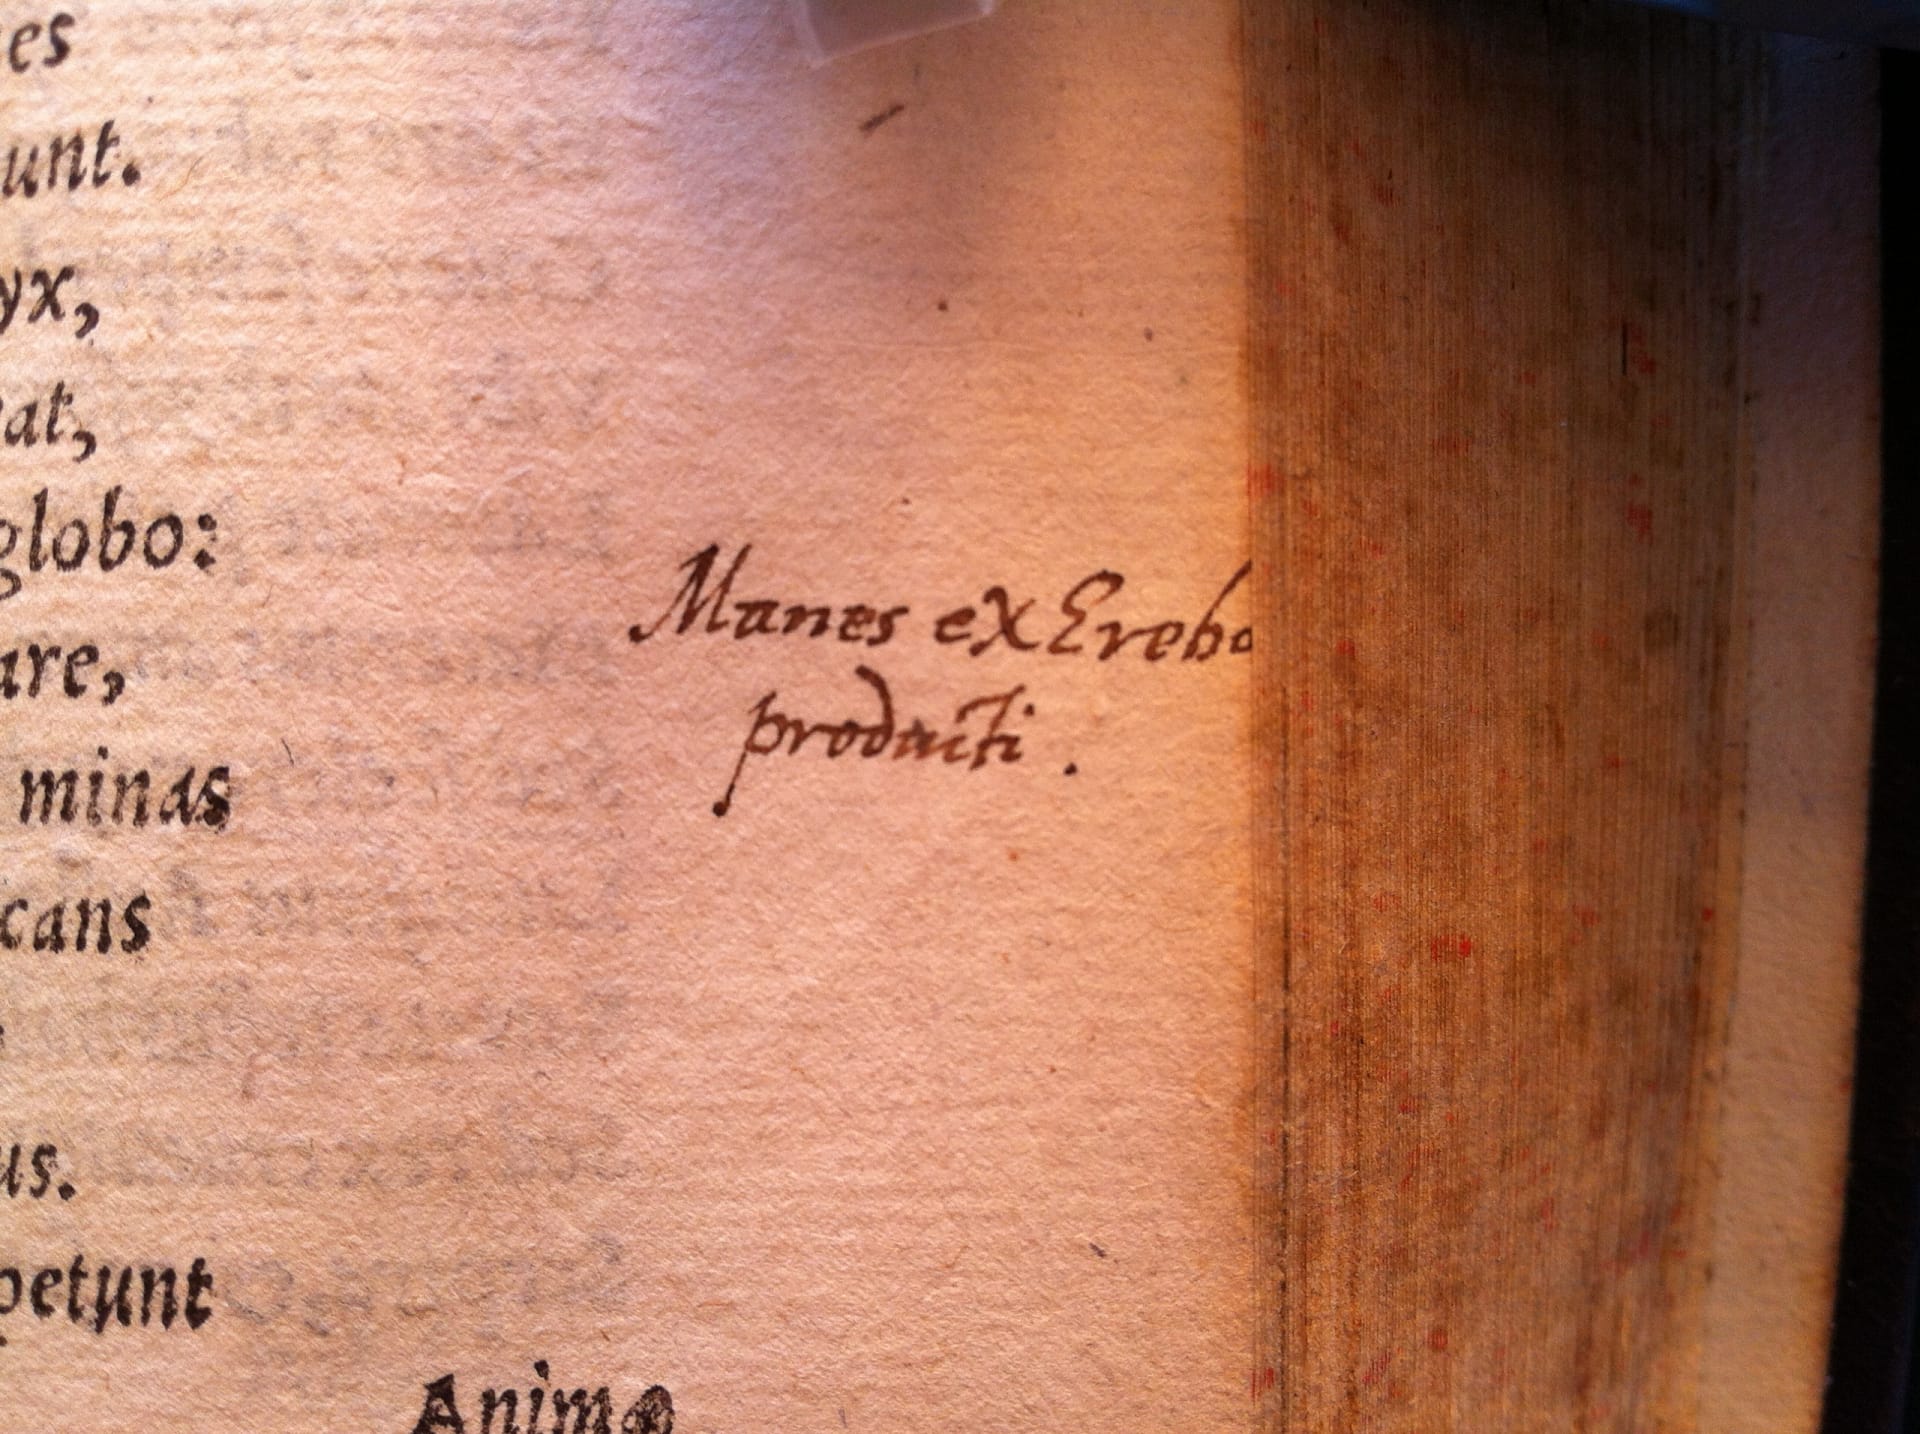 es
unt.
yx,
at,
globo:
Manes ex Erebo
are,
producti.
minas
cans
us.
petunt
Animæ